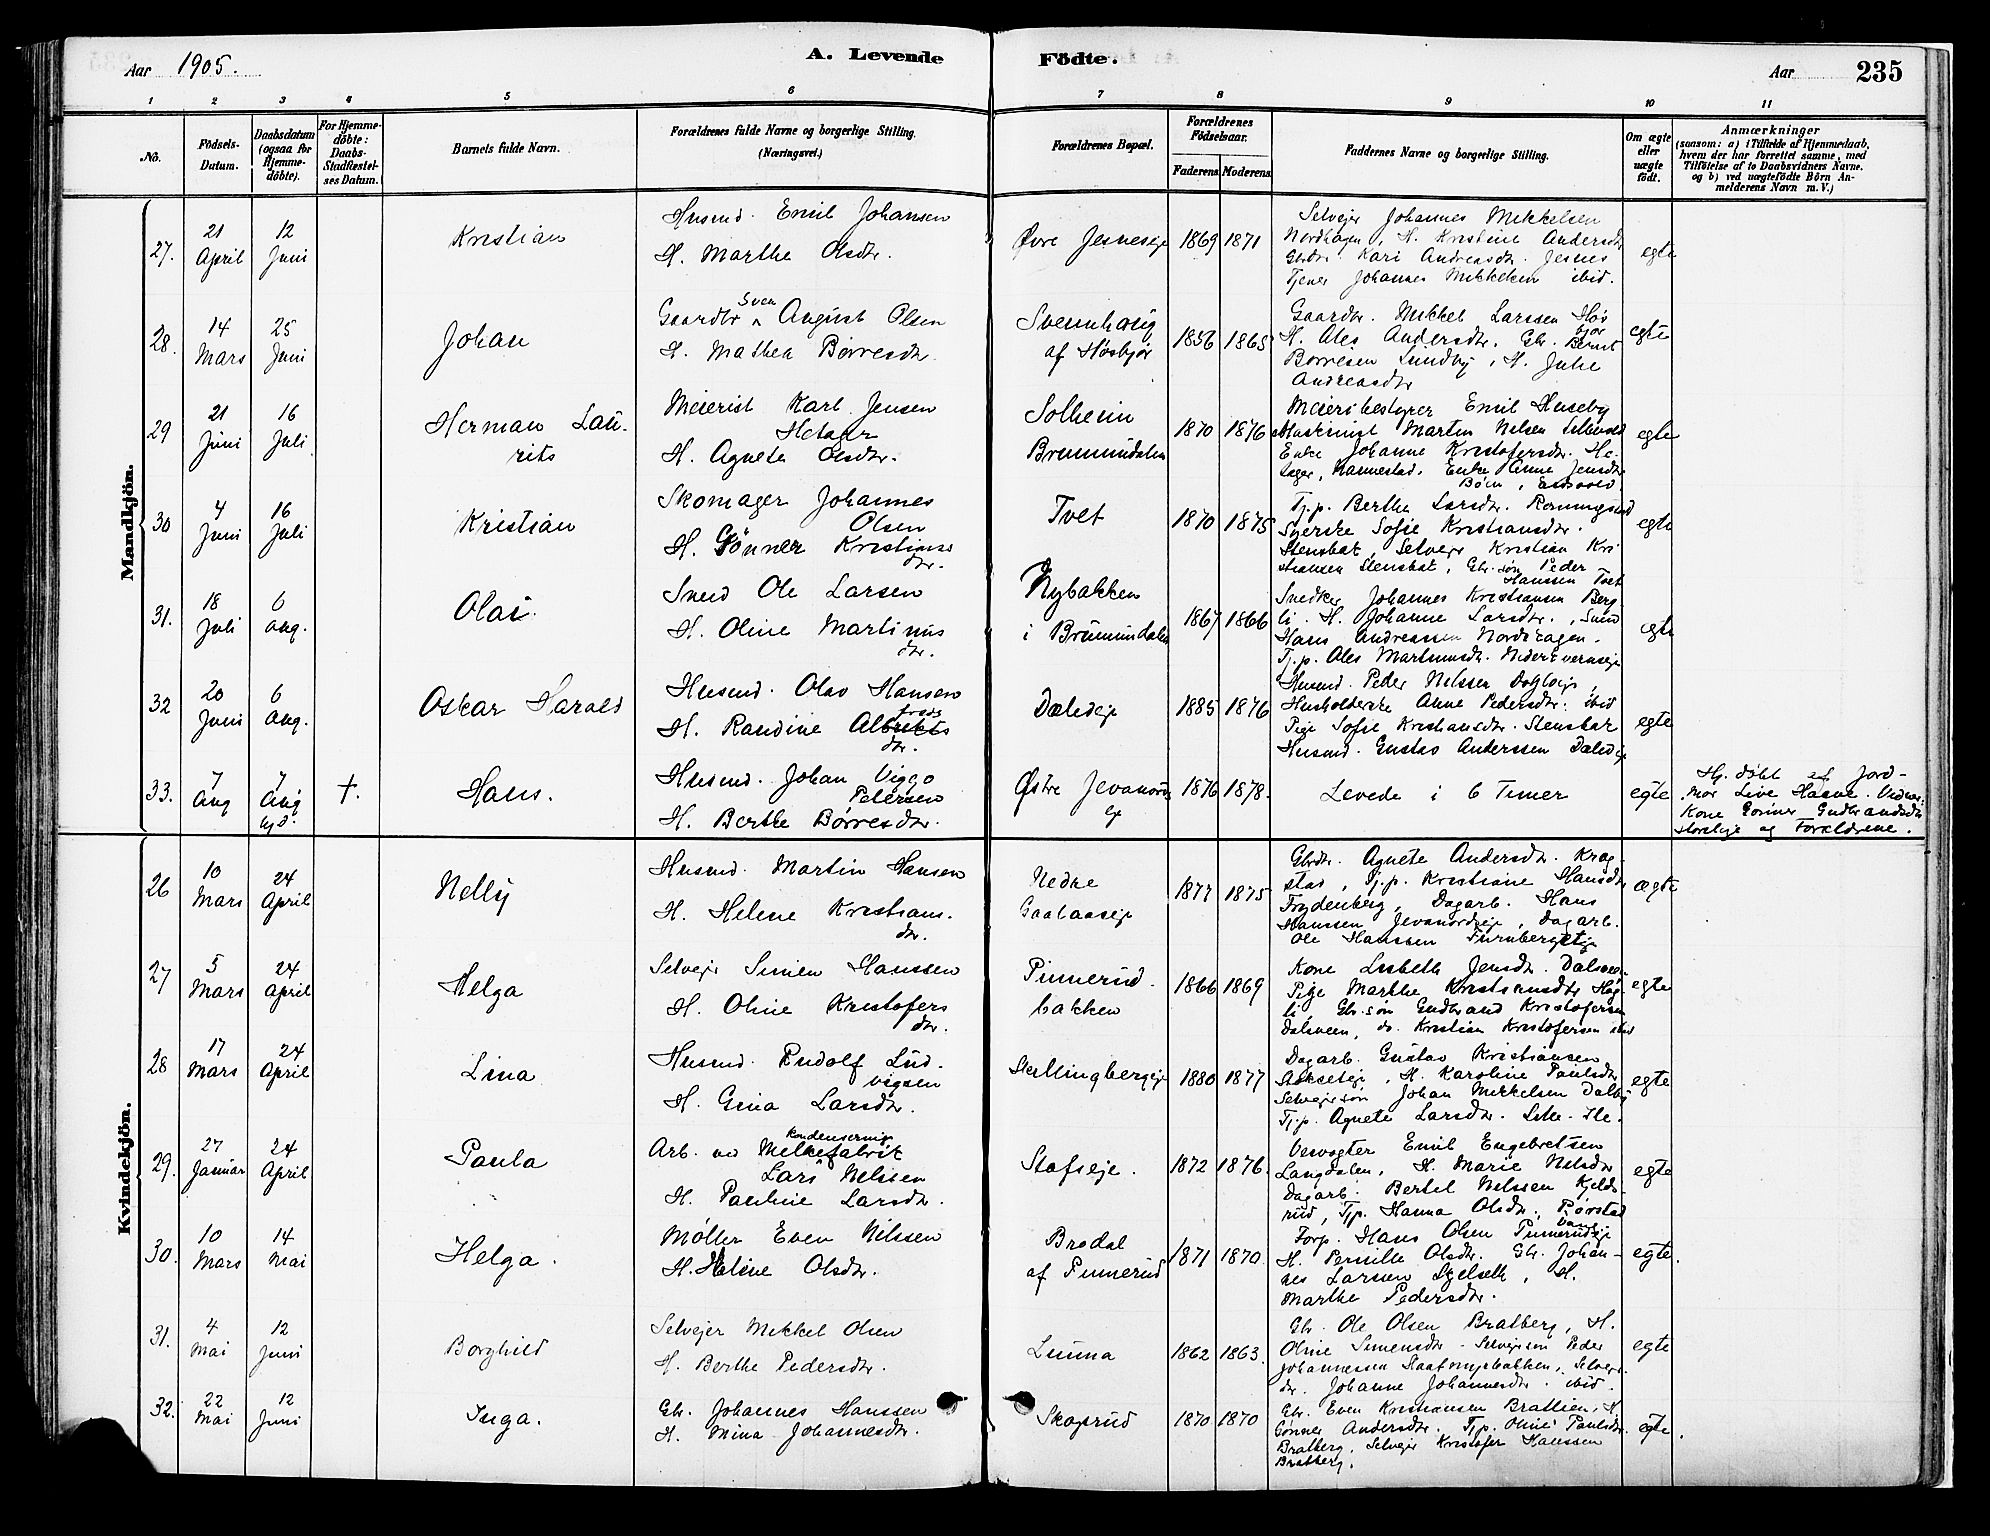 Aar 1905.
A. Levende
Födte.
Aar
235
1 2 3 4 5 6 7 8 9 10 11
No.
Födsels-Datum.
Daabsdatum (ogsaa for Hjemme-döbte).
For Hjemme-döbte: Daabs-Stadfæstel-ses Datum.
Barnets fulde Navn.
Forældrenes fulde Navne og borgerlige Stilling. (Næringsvei.)
Forældrenes Bopæl.
Forældrenes Födselsaar.
Faderens Moderens
Faddernes Navne og borgerlige Stilling.
Om ægte eller uægte födt.
Anmærkninger
(saasom: a) i Tilfælde af Hjemmedaab, hvem der har forrettet samme, med Tilföielse af to Daabsvidners Navne. og b) ved uægtefödte Börn An-melderens Navn m. V.)
Mandkjön.
27. 21 April 12 Juni Kristian
Husmd. Emil Johansen
H. Marthe Olsdtr.
Øvre Jesneseie 1869 1871
Selveier Johannes Mikkelsen
Nordhagen, H. Kristine Andersdtr
Gbrdtr. Kari Andreasdtr. Jesnes
Tjener Johannes Mikkelsen ibid.
egte
28. 14 Mars 25 Juni Johan
Gaardbr Sven August Olsen
H. Mathea Børresdtr.
Svenhaug af Høsbjør 1856 1865
Gaardbr. Mikkel Larssen Høs
bjør
H. Ales Andersdtr. Gbr. Bernt
Børresen Lundby, H. Julie
Andreasdtr
egte
29 21 Juni 16 Juli Herman Lau-
rits
Meierist Karl Jensen
H. Agnete Olsdtr.
Solheim
Brummundalen 1870 1876
Meieribestyrer Emil Huseby
Maskinist Martin Nelsen
Enke Johanne Kristofersdtr.
Enke Anne Jensdtr
egte
30 4 Juni 16 Juli Kristian
Skomager Johannes
Olsen
H. Gønner Kristians
dtr.
Tvet 1870 1875
Tj.p. Berthe Larsdtr.
Syerske Sofie Kristiansdtr.
Stensbak, Selveier Kristian Kri
stiansen Stensbak, Gbr. søn Peder
Hanssen Tvet
egte
31. 18 Juli 6 Aug. Olai
Sned Ole Larsen
H. Oline Martinus
dtr.
Nybakken
i Brummundalen 1867 1866
Snedker Johannes Kristiansen Berg
li. H. Johanne Larsdtr.,
Hans Andreassen Nordhagen.
Tj.p. Ales Martinusdtr.
egte
32 20 Juni 6 Aug. Oskar Harald
Husmd. Olav Hansen
freds
H. Randine Albrikts
dtr.
Daleeie 1885 1876
Husmd. Peder Nilssen
Husholderske Anne Pedersdtr. ibid
Pige Sofie Kristiansdtr. Stensbak
Husmd. Gustav Anderssen Daleeie
egte
33. 7 Aug 7 Aug hjd. †. Hans.
Husmd. Johan Viggo
Petersen
H. Berthe Børresdtr.
Østre Jevanords
eie 1876 1878.
Levede i 6 Timer
egte
Hj. døbt af Jord-
mor Live Hasne. Vidner:
Kone Gønner Gudbrandsdtr
og Forældrene.
Kvindekjön.
26 10 Mars 24 April Nelly
Husmd. Martin Hansen
H. Helene Kristians.
dtr.
Nedre
Gaalaaseie 1877 1875
Gbrdtr. Agnete Andersdtr. Krog-
stad, Tj.p. Kristiane Hansdtr
Frydenberg, Dagarb. Hans
Hanssen Jevanordseie, Dagarb.
Ole Hanssen Furnbergeie
ægte
27 5 Mars 24 April Helga
Selveier Simen Hanssen
H. Oline Kristofers
dtr.
Pinnerud-
bakken 1866 1869
Kone Lisbeth Jensdtr. Dalsveen
Pige Marthe Kristiansdtr Høg-
li, Gbr. søn Gudbrand Kristofersen
Dalsveen, do. Kristian Kristofersen ibid
egte
28 17 Mars 24 April Lina
Husmd. Rudolf Lud-
vigsen
H. Gina Larsdtr.
Skellingbergeie 1880 1877
Dagarb. Gustav Kristiansen
H. Karoline Paulsdtr
Selveiersøn Johan Mikkelsen Dalby
Tj.p. Agnete Larsdtr. Lille-He.
egte
29. 27 Januar 24 April Paula
kondensering
Arb. ved Melkefabrik
Lars Nelssen
H. Pauline Larsdtr.
Stafseie. 1872 1876.
Veivogter Emil Engebretsen
Langdalen, H. Marie Nelsdtr
Dagarb. Bertel Nilssen Kjelds-
rud, Tj.p. Hanna Olsdtr. Rørstad
egte
30. 10 Mars 14 Mai Helga.
Møller Even Nilssen
H. Helene Olsdtr.
Brodal
af Pinnerud 1871 1870.
Forp. Hans Olsen Pinnerudeie
H. Pernille Olsdtr. Gbr. Johan-
nes Larssen Skjelseth, H.
Marthe Pedersdtr.
egte.
31. 4 Mai 12 Juni Borghild
Selveier Mikkel Olsen
H. Berthe Pedersdtr.
Lunna 1862 1863.
Gbr. Ole Olsen Bratberg, H.
Oline Simensdtr. Selveiersøn Peder
Johannessen Staatompbakken, Selveier
dtr. Johanne Johannesdtr. ibid.
egte
32. 22 Mai 12 Juni Inga.
Gbr. Johannes Hanssen
H. Mina Johannesdtr.
Skogsrud 1870 1870
Gbr. Even Kristiansen Bratlien, H.
Gønner Andersdtr. Tj.p. Oline Paulsdtr.
Bratberg, Selveier Kristofer Hanssen
Bratberg.
egte.